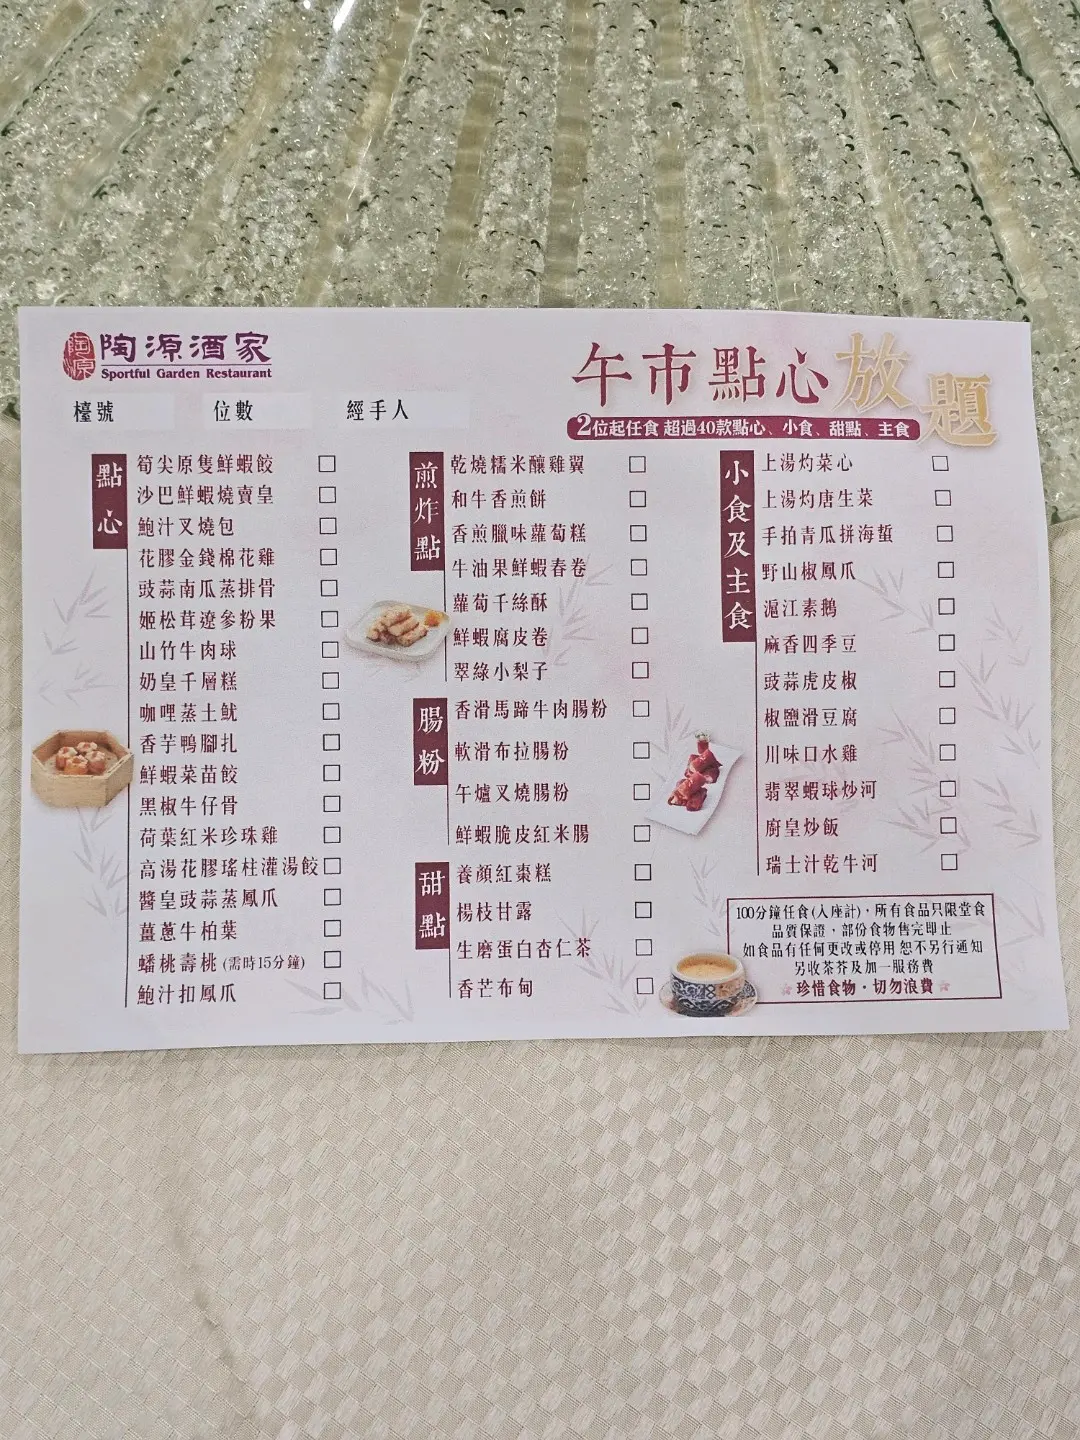 陶源
陶源酒家
Sportful Garden Restaurant
午市點心放題
2位起任食 超過40款點心、小食、甜點、主食
檯號
位數
經手人
點心
筍尖原隻鮮蝦餃 □
沙巴鮮蝦燒賣皇 □
鮑汁叉燒包 □
花膠金錢棉花雞 □
豉蒜南瓜蒸排骨 □
姬松茸遼參粉果 □
山竹牛肉球 □
奶皇千層糕 □
咖哩蒸土魷 □
香芋鴨腳扎 □
鮮蝦菜苗餃 □
黑椒牛仔骨 □
荷葉紅米珍珠雞 □
高湯花膠瑤柱灌湯餃 □
醬皇豉蒜蒸鳳爪 □
薑蔥牛柏葉 □
蟠桃壽桃 (需時15分鐘) □
鮑汁扣鳳爪 □
煎炸點
乾燒糯米釀雞翼 □
和牛香煎餅 □
香煎臘味蘿蔔糕 □
牛油果鮮蝦春卷 □
蘿蔔千絲酥 □
鮮蝦腐皮卷 □
翠綠小梨子 □
腸粉
香滑馬蹄牛肉腸粉 □
軟滑布拉腸粉 □
午爐叉燒腸粉 □
鮮蝦脆皮紅米腸 □
甜點
養顏紅棗糕 □
楊枝甘露 □
生磨蛋白杏仁茶 □
香芒布甸 □
小食及主食
上湯灼菜心 □
上湯灼唐生菜 □
手拍青瓜拼海蜇 □
野山椒鳳爪 □
滬江素鵝 □
麻香四季豆 □
豉蒜虎皮椒 □
椒鹽滑豆腐 □
川味口水雞 □
翡翠蝦球炒河 □
廚皇炒飯 □
瑞士汁乾牛河 □
100分鐘任食(入座計)，所有食品只限堂食
品質保證，部份食物售完即止
如食品有任何更改或停用 恕不另行通知
另收茶芥及加一服務費
珍惜食物·切勿浪費